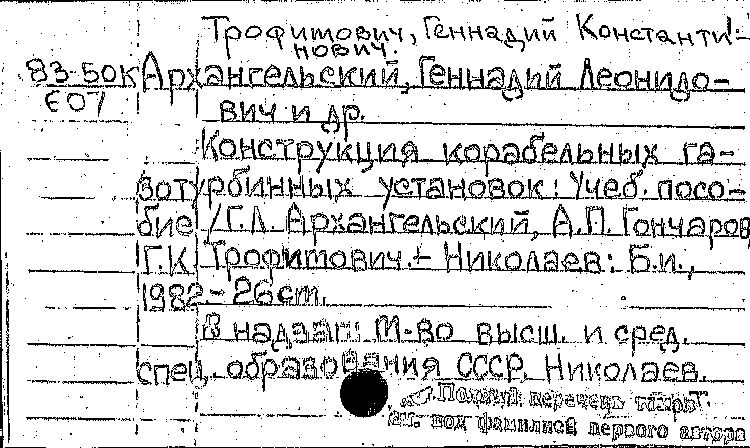 Трофимович, Геннадий Константи-
нович.
83-50К Архангельский, Геннадий Леонидо-
607 вич и др.
Конструкция корабельных га-
зотурбинных установок: Учеб. посо-
бие / Г.Л. Архангельский, А.П. Гончаров
Г.К. Трофимович. - Николаев: Б.и.,
1982 - 26 ст.
В надзаг: М-во высш. и сред.
спец. образования СССР. Николаев.
Полный перечень
см. под фамилией первого автора